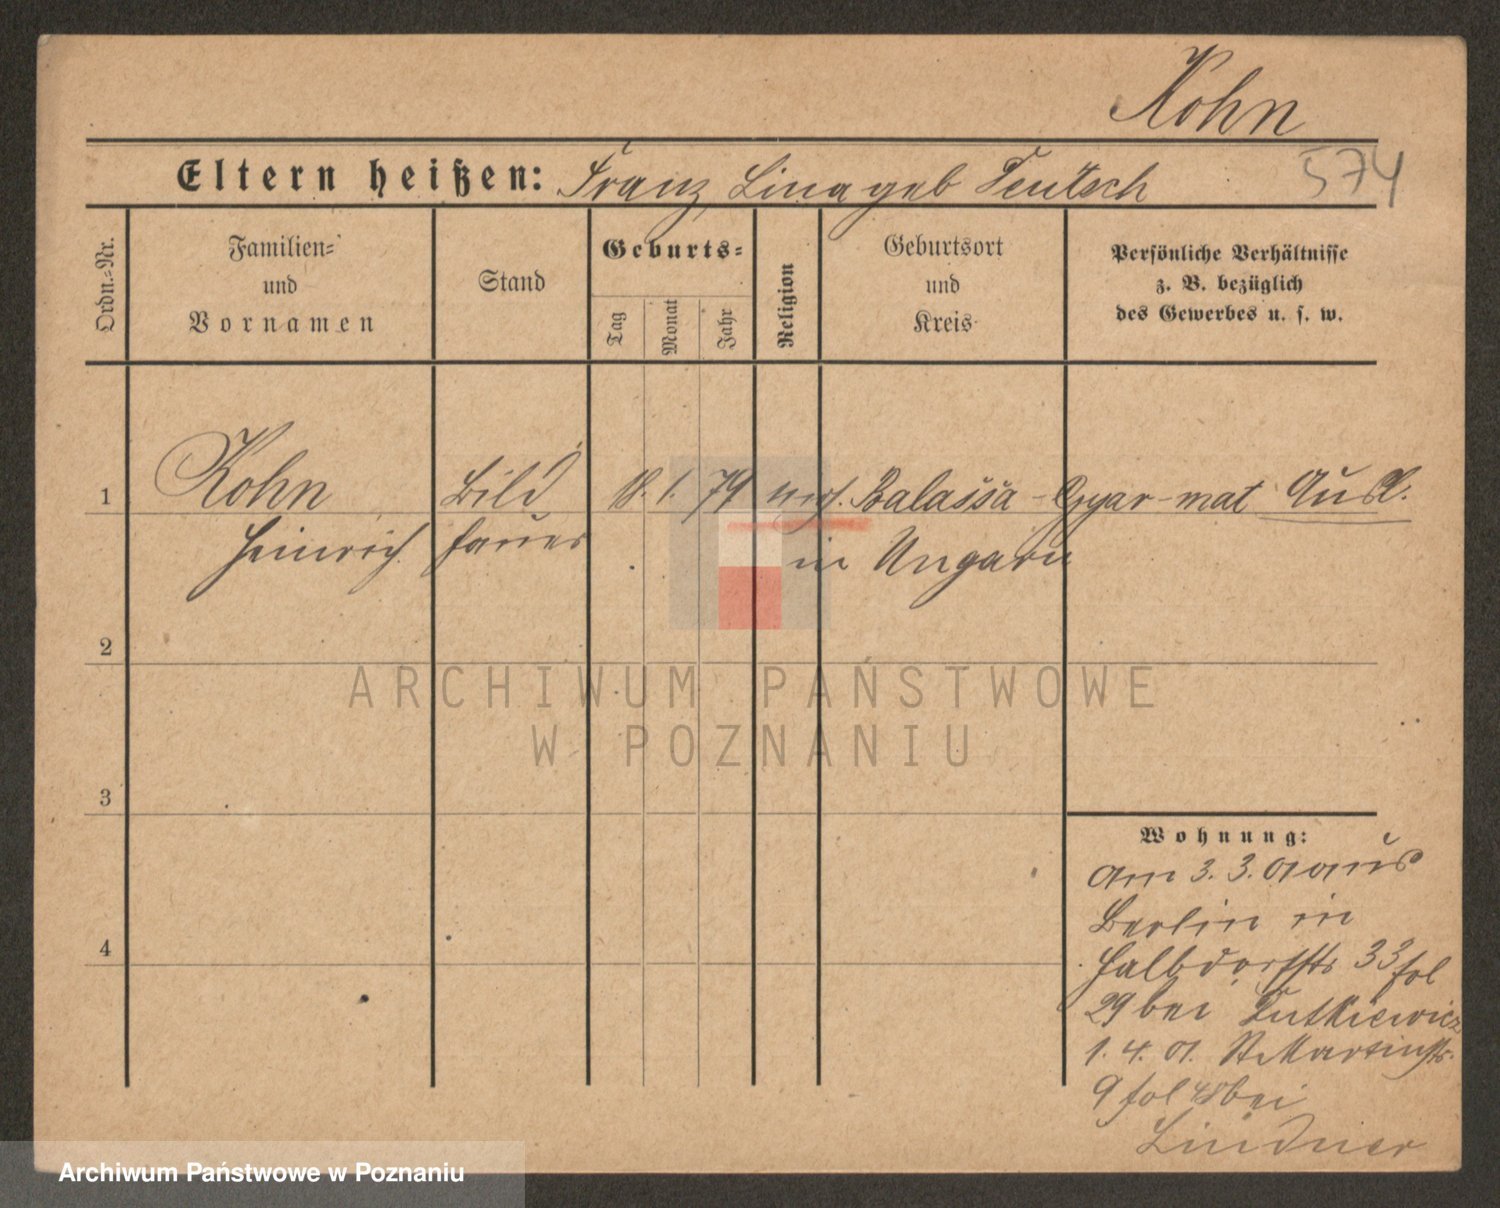 Kohn
574
Eltern heißen: Franz, Lina geb Teutsch
Ordn.-Nr.
Familien-
und
Vornamen
Stand
Geburts-
Tag
Monat
Jahr
Religion
Geburtsort
und
Kreis
Persönliche Verhältnisse
z. B. bezüglich
des Gewerbes u. s. w.
1 Kohn Bild 18. 1. 79 Balassa-Gyar-mat Ausl.
Heinrich hauer in Ungarn
2
ARCHIWUM PAŃSTWOWE
W POZNANIU
3
Wohnung:
am 3. 3. 01 aus
Berlin in
4
Halbdorfstr 33 fol
29 bei Tutkiewicz
1. 4. 01. St Martinstr.
9 fol 48 bei
Lindner
Archiwum Państwowe w Poznaniu